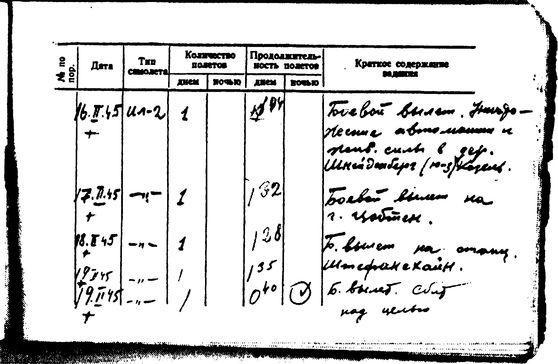 № по пор. Дата Тип самолета Количество полетов Продолжительность полетов Краткое содержание задания
днем ночью днем ночью
16.II.45 Ил-2 1 Боевой вылет. Уничтожение автомашин и жив. силы в дер.
17.II.45 —„— 1 1 32 Боевой вылет на г. Цобтен.
18.II.45 —„— 1 1 28 Б. вылет на станц. Штефансхайн.
19.II.45 —„— 1 1 35
19.II.45 —„— 1 0 40 Б. вылет. Сбит над целью